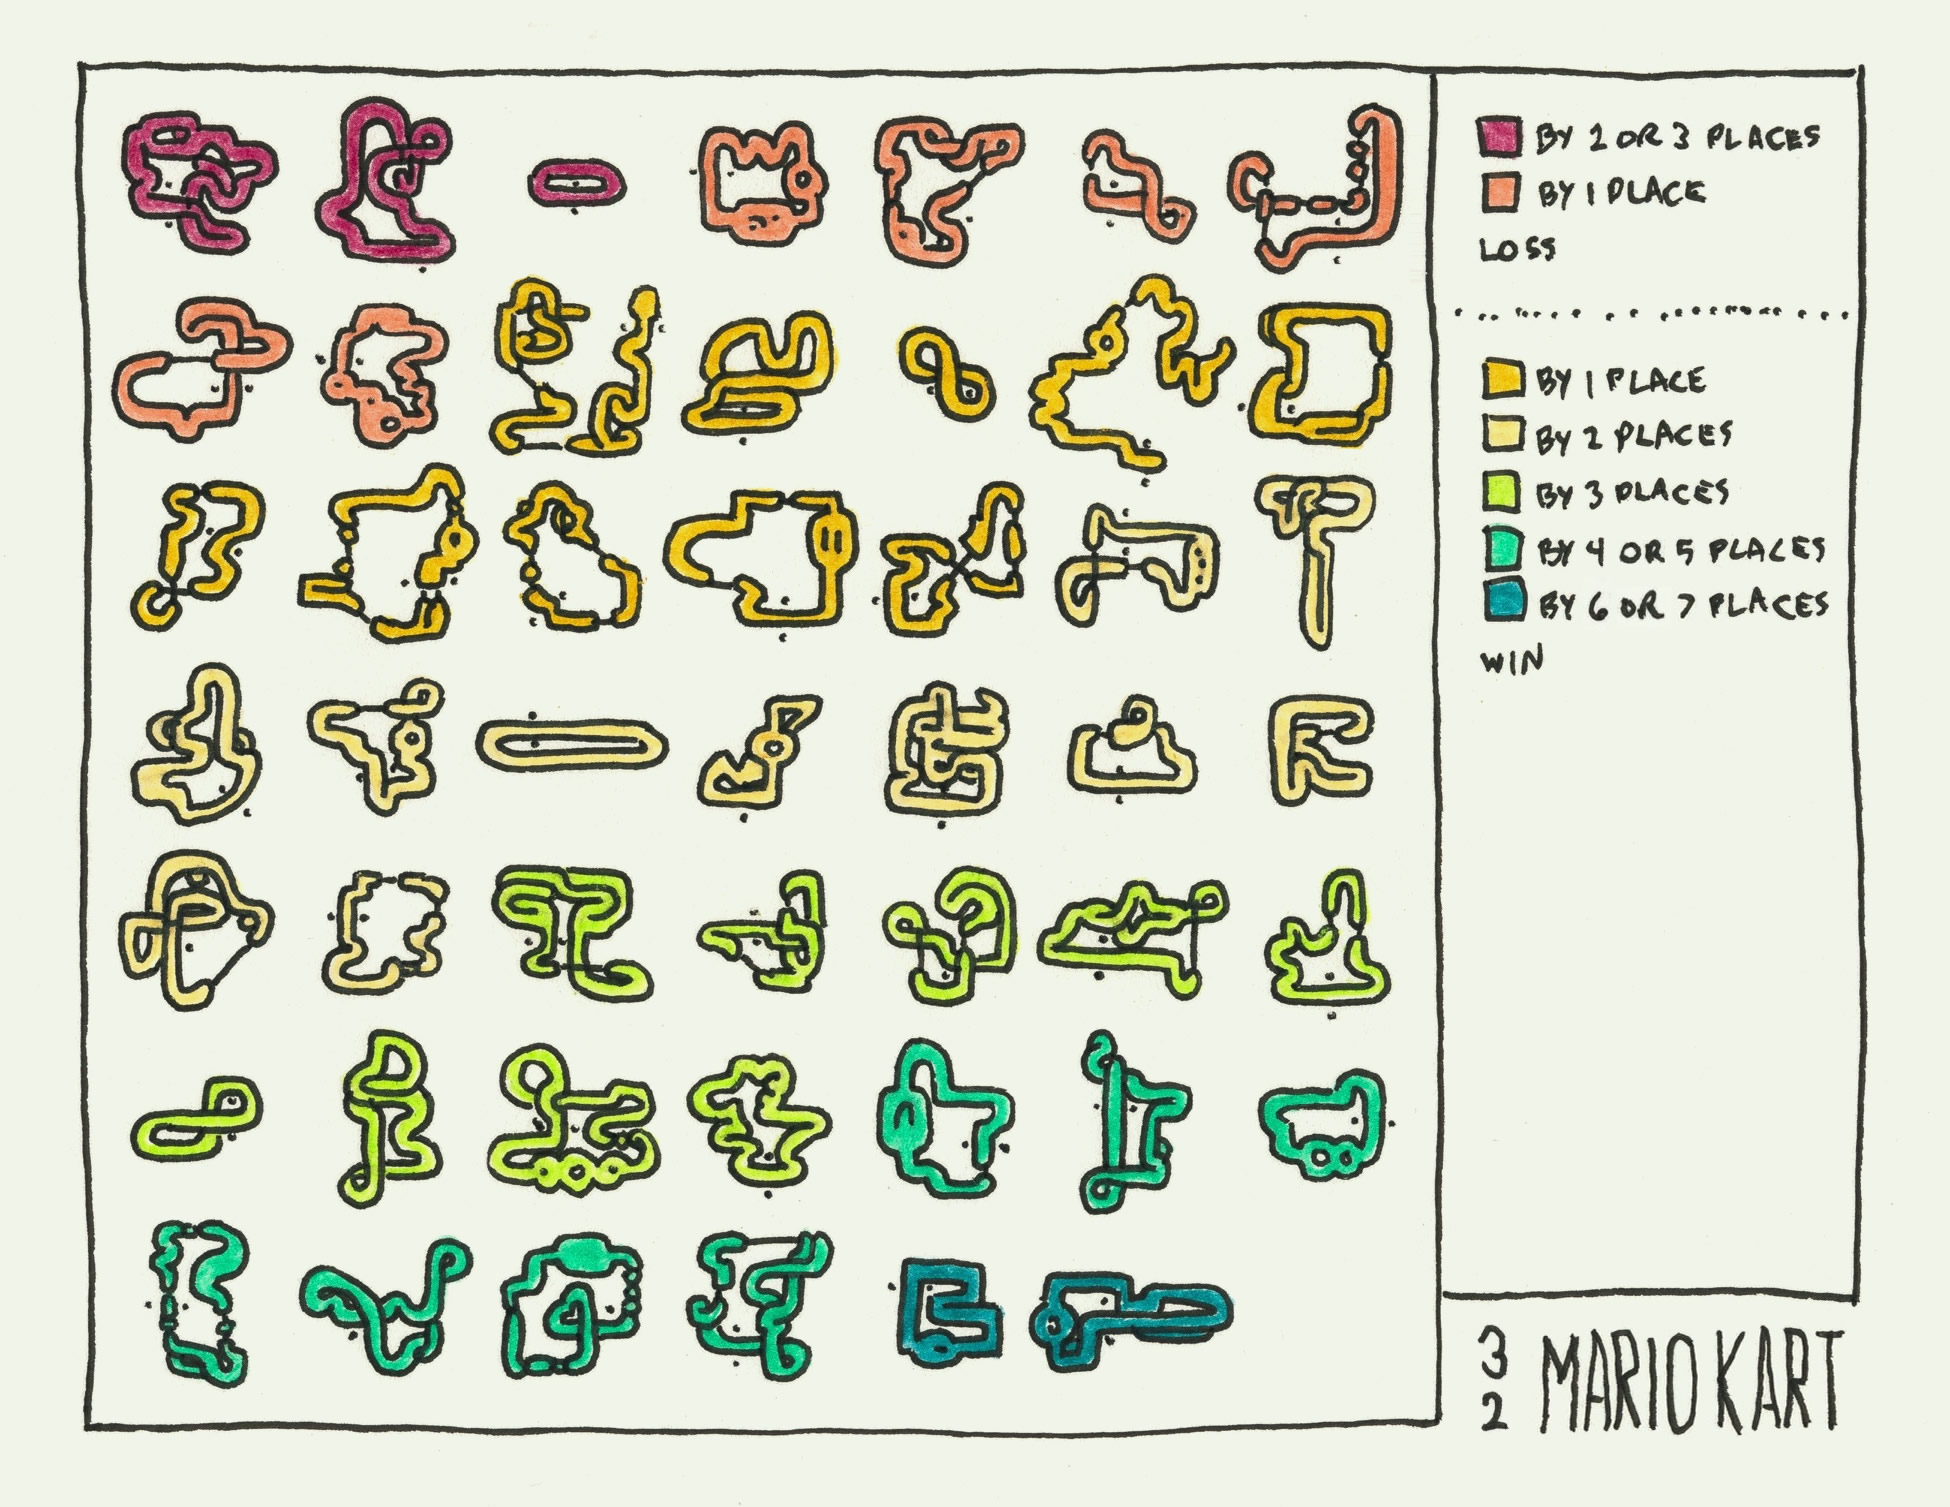 BY 2 OR 3 PLACES
BY 1 PLACE
LOSS
BY 1 PLACE
BY 2 PLACES
BY 3 PLACES
BY 4 OR 5 PLACES
BY 6 OR 7 PLACES
WIN
32 MARIO KART